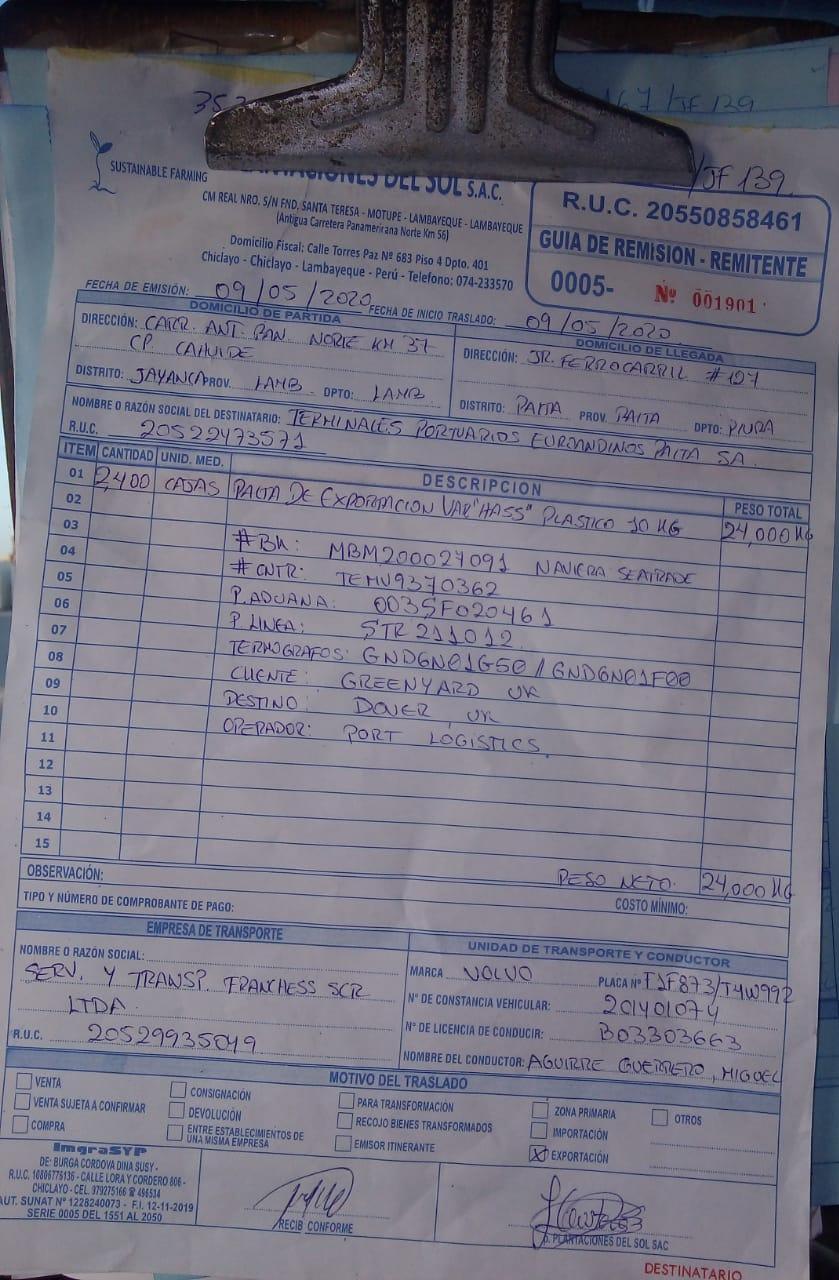 JF 139
SUSTAINABLE FARMING
DEL SOL S.A.C.
CM REAL NRO. S/N FND. SANTA TERESA - MOTUPE - LAMBAYEQUE - LAMBAYEQUE
(Antigua Carretera Panamerica Norte Km 56)
Domicilio Fiscal: Calle Torres Paz Nº 683 Piso 4 Dpto. 401
Chiclayo - Chiclayo - Lambayeque - Perú - Telefono: 074-233570
R.U.C. 20550858461
GUIA DE REMISION - REMITENTE
0005- Nº 001901
FECHA DE EMISIÓN: 09/05/2020 FECHA DE INICIO TRASLADO: 09/05/2020
DOMICILIO DE PARTIDA
DIRECCIÓN: CARR. ANT. PAN. NORTE KM 37
CP. CAHUIDE
DISTRITO: JAYANCA PROV. LAMB. DPTO: LAMB
DOMICILIO DE LLEGADA
DIRECCIÓN: JR. FERROCARRIL #127
DISTRITO: PAITA PROV. PAITA DPTO: PIURA
NOMBRE O RAZÓN SOCIAL DEL DESTINATARIO: TERMINALES PORTUARIOS EUROANDINOS PAITA SA.
R.U.C. 20522473571
ITEM CANTIDAD UNID. MED. DESCRIPCION PESO TOTAL
01 2,400 CAJAS PALTA DE EXPORTACION VAR "HASS" PLASTICO 10 KG 24,000 KG
02
03 #BK: MBM200027091 NAVIERA SEATRADE
04 #CNTR: TEMU9370362
05 P. ADUANA: 003SF020461
06 P. LINEA: STR211012
07 TERMOGRAFOS: GND6N01G50 / GND6N01F00
08 CLIENTE: GREENYARD UK
09 DESTINO: DOVER, UK
10 OPERADOR: PORT LOGISTICS.
11
12
13
14
15
OBSERVACIÓN: PESO NETO. 24,000 KG
TIPO Y NÚMERO DE COMPROBANTE DE PAGO: COSTO MÍNIMO:
EMPRESA DE TRANSPORTE
NOMBRE O RAZÓN SOCIAL:
SERV. Y TRANSP. FRANCHESS SCR
LTDA.
R.U.C. 20529935049
UNIDAD DE TRANSPORTE Y CONDUCTOR
MARCA VOLVO PLACA Nº F1F873/T4W992
Nº DE CONSTANCIA VEHICULAR: 201401074
Nº DE LICENCIA DE CONDUCIR: B03303663
NOMBRE DEL CONDUCTOR: AGUIRRE GUERRERO, MIGUEL
MOTIVO DEL TRASLADO
VENTA
VENTA SUJETA A CONFIRMAR
COMPRA
CONSIGNACIÓN
DEVOLUCIÓN
ENTRE ESTABLECIMIENTOS DE
UNA MISMA EMPRESA
PARA TRANSFORMACIÓN
RECOJO BIENES TRANSFORMADOS
EMISOR ITINERANTE
ZONA PRIMARIA
IMPORTACIÓN
X EXPORTACIÓN
OTROS
ImgraSYP
DE: BURGA CORDOVA DINA SUSY -
R.U.C. 10806776136 - CALLE LORA Y CORDERO 806 -
CHICLAYO - CEL. 979275166 ☎ 496534
AUT. SUNAT Nº 1228240073 - F.I. 12-11-2019
SERIE 0005 DEL 1551 AL 2050
RECIBI CONFORME
P. PLANTACIONES DEL SOL SAC
DESTINATARIO